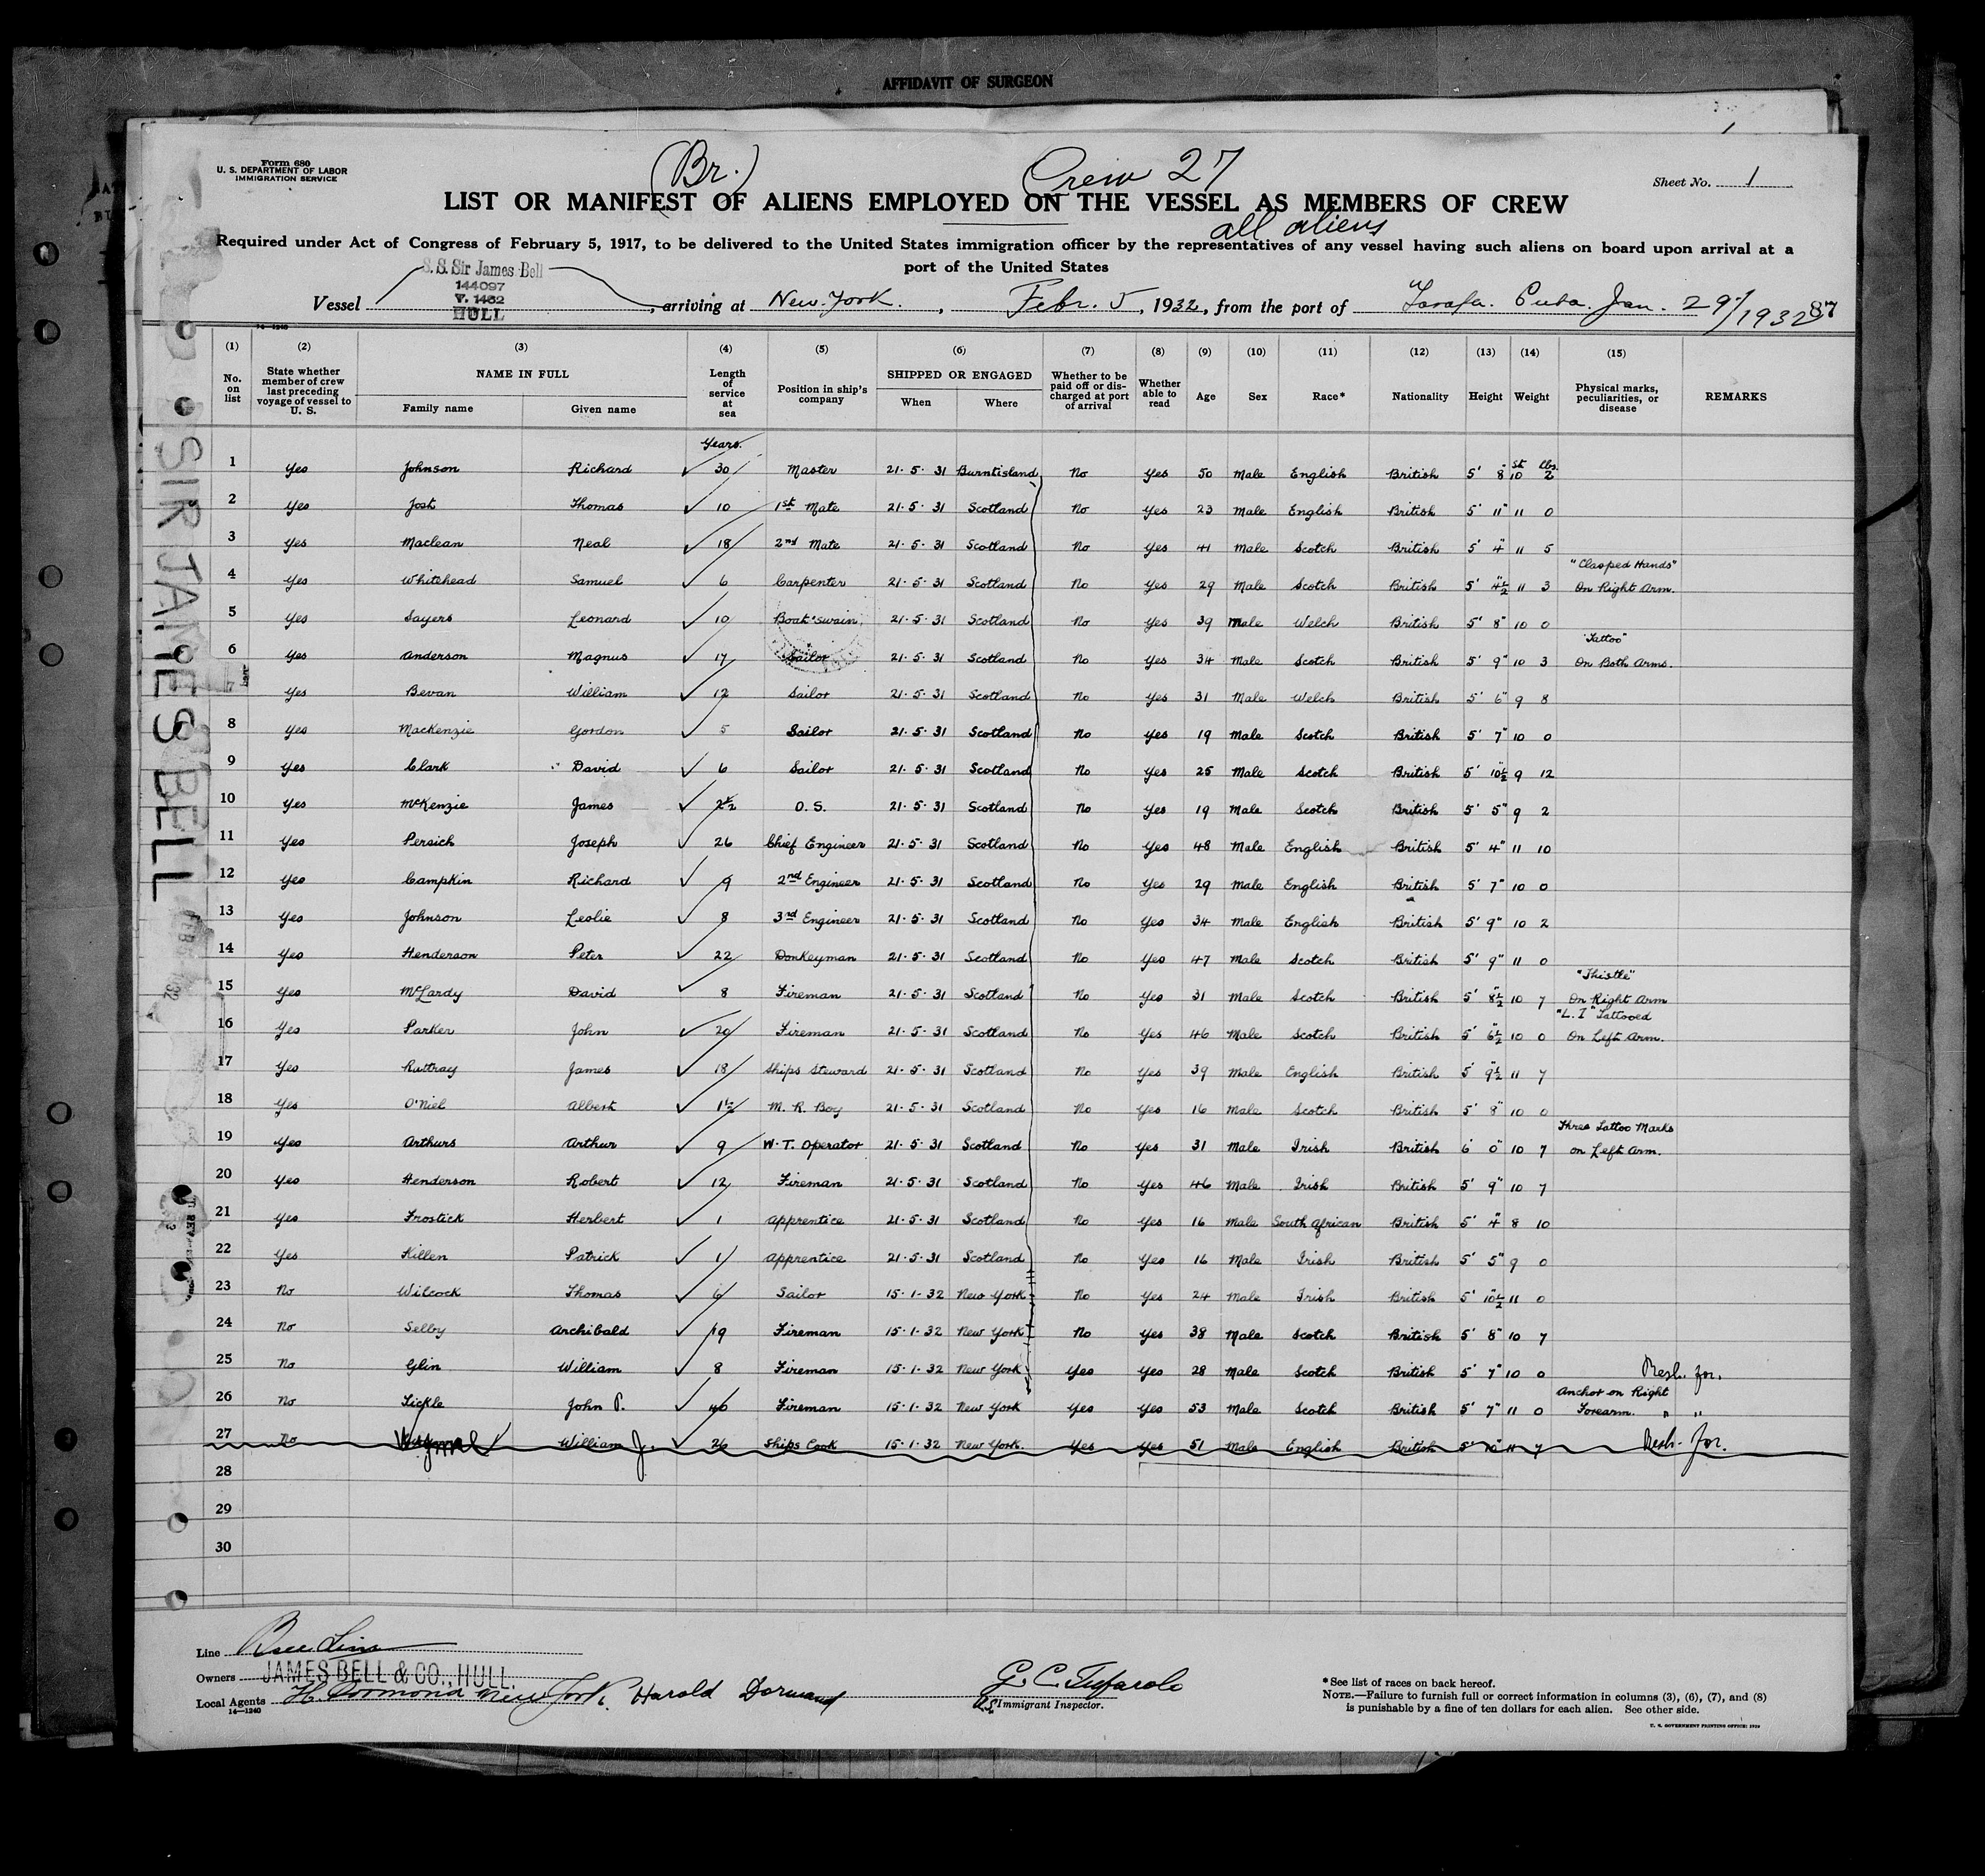 AFFIDAVIT OF SURGEON
Form 680
U. S. DEPARTMENT OF LABOR
IMMIGRATION SERVICE
(Br.)
Crew 27
Sheet No. 1
LIST OR MANIFEST OF ALIENS EMPLOYED ON THE VESSEL AS MEMBERS OF CREW
all aliens
Required under Act of Congress of February 5, 1917, to be delivered to the United States immigration officer by the representatives of any vessel having such aliens on board upon arrival at a
port of the United States
S. S. Sir James Bell
144097
HULL
Vessel , arriving at New York. , Febr. 5, 1932, from the port of Tarafa. Cuba. Jan. 29/1932
87
14—1240
(1) (2) (3) (4) (5) (6) (7) (8) (9) (10) (11) (12) (13) (14) (15)
No. on list
State whether member of crew last preceding voyage of vessel to U. S.
NAME IN FULL
Family name Given name
Length of service at sea
Position in ship's company
SHIPPED OR ENGAGED
When Where
Whether to be paid off or discharged at port of arrival
Whether able to read
Age Sex Race* Nationality Height Weight
Physical marks, peculiarities, or disease
REMARKS
Years.
1 Yes Johnson Richard 30 Master 21. 5. 31 Burntisland No Yes 50 Male English British 5' 8" 10 St 2 Lbs.
2 Yes Jost Thomas 10 1st Mate 21. 5. 31 Scotland No Yes 23 Male English British 5' 11" 11 0
3 Yes Maclean Neal 18 2nd Mate 21. 5. 31 Scotland No Yes 41 Male Scotch British 5' 4" 11 5
4 Yes Whitehead Samuel 6 Carpenter 21. 5. 31 Scotland No Yes 29 Male Scotch British 5' 4½" 11 3 "Clasped Hands" On Right Arm.
5 Yes Sayers Leonard 10 Boat'swain 21. 5. 31 Scotland No Yes 39 Male Welch British 5' 8" 10 0
6 Yes Anderson Magnus 17 Sailor 21. 5. 31 Scotland No Yes 34 Male Scotch British 5' 9" 10 3 "Tattoo" On Both Arms.
7 Yes Bevan William 12 Sailor 21. 5. 31 Scotland No Yes 31 Male Welch British 5' 6" 9 8
8 Yes Mackenzie Gordon 5 Sailor 21. 5. 31 Scotland No Yes 19 Male Scotch British 5' 7" 10 0
9 Yes Clark David 6 Sailor 21. 5. 31 Scotland No Yes 25 Male Scotch British 5' 10½" 9 12
10 Yes McKenzie James 2½ O. S. 21. 5. 31 Scotland No Yes 19 Male Scotch British 5' 5" 9 2
11 Yes Persich Joseph 26 Chief Engineer 21. 5. 31 Scotland No Yes 48 Male English British 5' 4" 11 10
12 Yes Campkin Richard 9 2nd Engineer 21. 5. 31 Scotland No Yes 29 Male English British 5' 7" 10 0
13 Yes Johnson Leslie 8 3rd Engineer 21. 5. 31 Scotland No Yes 34 Male English British 5' 9" 10 2
14 Yes Henderson Peter 22 Donkeyman 21. 5. 31 Scotland No Yes 47 Male Scotch British 5' 9" 11 0
15 Yes McLardy David 8 Fireman 21. 5. 31 Scotland No Yes 31 Male Scotch British 5' 8½" 10 7 "Thistle" On Right Arm
16 Yes Parker John 20 Fireman 21. 5. 31 Scotland No Yes 46 Male Scotch British 5' 6½" 10 0 "L. I" Tattooed On Left Arm.
17 Yes Ruttray James 18 Ships Steward 21. 5. 31 Scotland No Yes 39 Male English British 5' 9½" 11 7
18 Yes O'Niel Albert 1½ M. R. Boy 21. 5. 31 Scotland No Yes 16 Male Scotch British 5' 8" 10 0
19 Yes Arthurs Arthur 9 W. T. Operator 21. 5. 31 Scotland No Yes 31 Male Irish British 6' 0" 10 7 Three Tattoo Marks on Left Arm.
20 Yes Henderson Robert 12 Fireman 21. 5. 31 Scotland No Yes 46 Male Irish British 5' 9" 10 7
21 Yes Frostick Herbert 1 Apprentice 21. 5. 31 Scotland No Yes 16 Male South African British 5' 4" 8 10
22 Yes Killen Patrick 1 Apprentice 21. 5. 31 Scotland No Yes 16 Male Irish British 5' 5" 9 0
23 No Wilcock Thomas 6 Sailor 15. 1. 32 New York No Yes 24 Male Irish British 5' 10½" 11 0
24 No Selby Archibald 19 Fireman 15. 1. 32 New York No Yes 38 Male Scotch British 5' 8" 10 7
25 No Glin William 8 Fireman 15. 1. 32 New York Yes Yes 28 Male Scotch British 5' 7" 10 0 Resh. for.
26 No Tickle John P. 40 Fireman 15. 1. 32 New York Yes Yes 53 Male Scotch British 5' 7" 11 0 Anchor on Right Forearm. " "
27 No William J. 26 Ships Cook 15. 1. 32 New York. Yes Yes 51 Male English British 5' 10" 11 7 Resh. for.
28
29
30
SIR JAMES BELL
Line Bell Line
Owners JAMES BELL & CO., HULL.
Local Agents H. Dormond New York. Harold Dormand
14—1240
G. C. Tufarolo
U.S. Immigrant Inspector.
*See list of races on back hereof.
NOTE.—Failure to furnish full or correct information in columns (3), (6), (7), and (8)
is punishable by a fine of ten dollars for each alien. See other side.